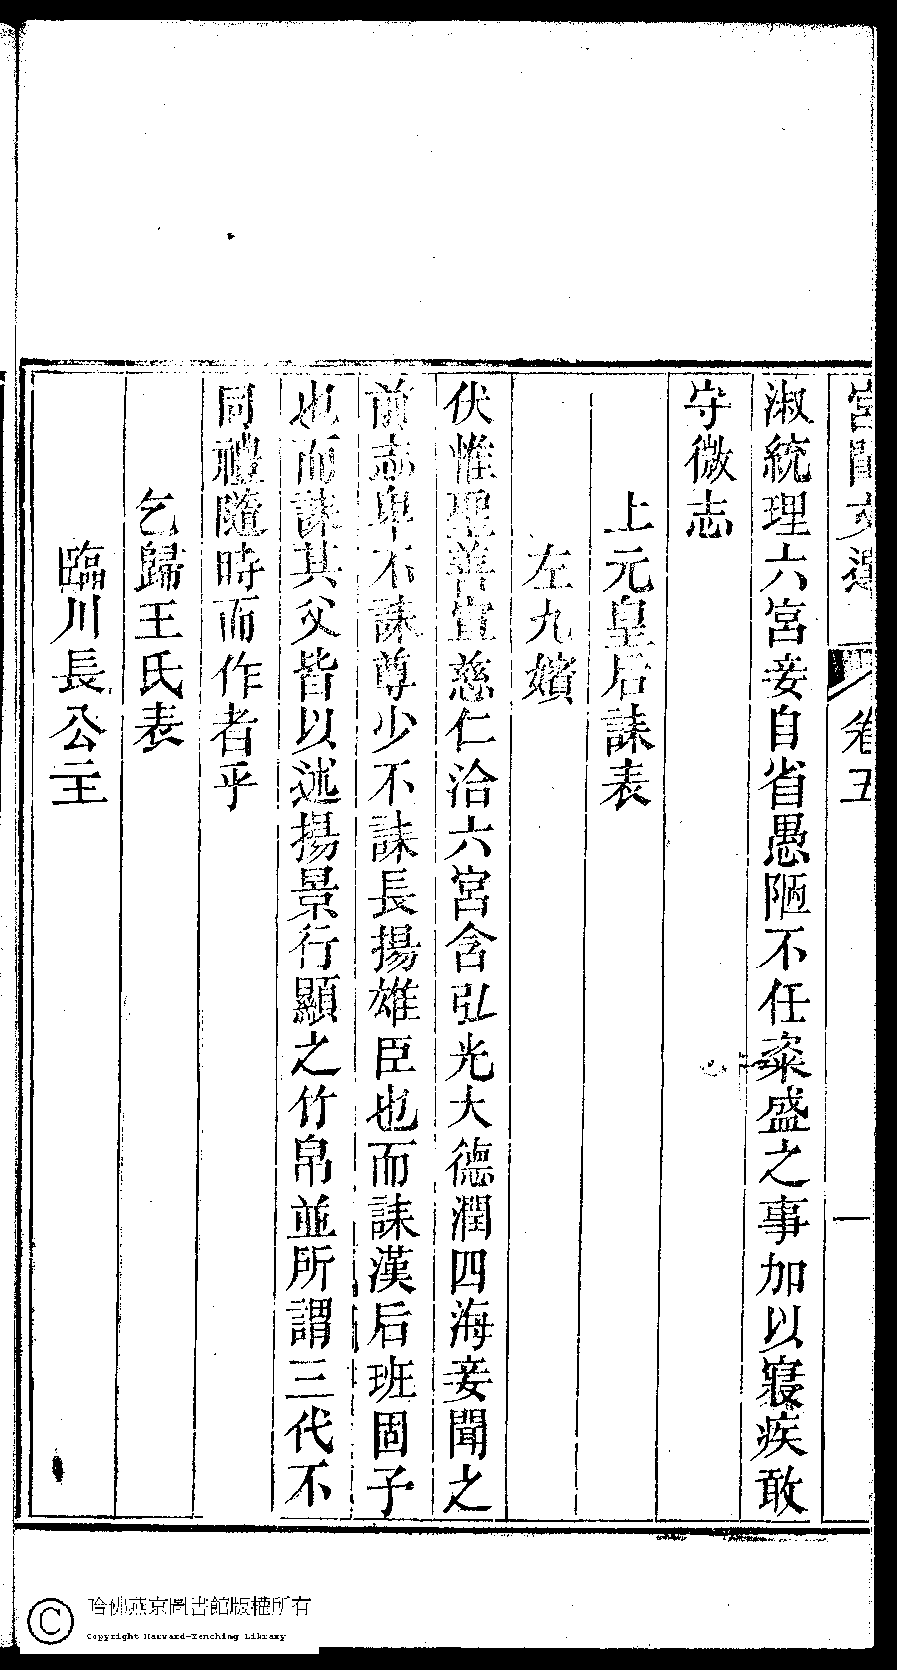 宮閨文選 卷五 一
淑統理六宮妾自省愚陋不任粢盛之事加以寢疾敢
守微志
上元皇后誄表
左九嬪
伏惟聖善宣慈仁洽六宮含弘光大德潤四海妾聞之
前志卑不誄尊少不誄長揚雄臣也而誄漢后班固子
也而誄其父皆以述揚景行顯之竹帛並所謂三代不
同禮隨時而作者乎
乞歸王氏表
臨川長公主
哈佛燕京圖書館版權所有
Copyright Harvard-Yenching Library